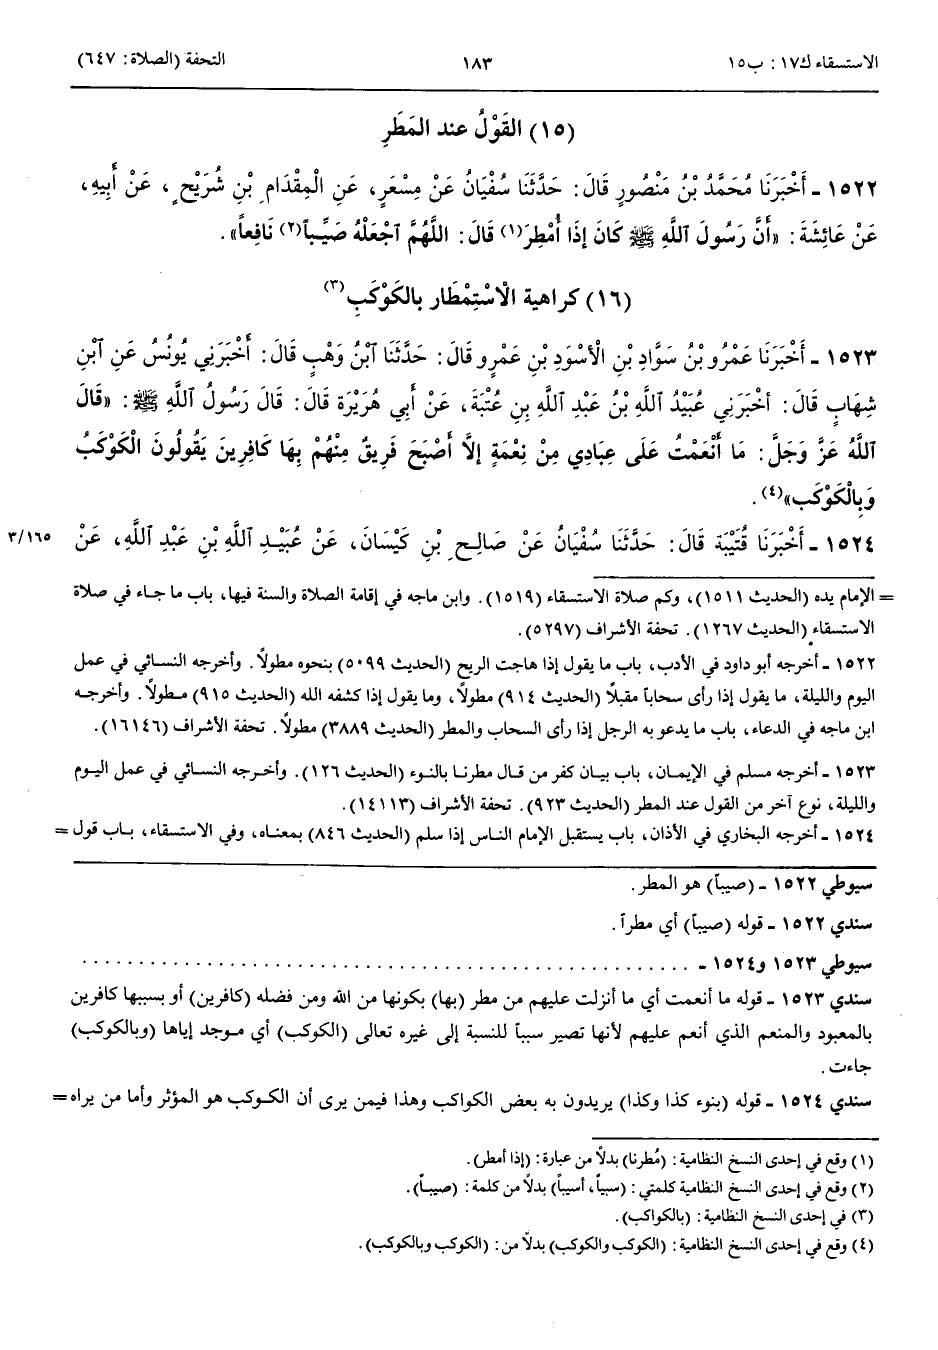 الاستسقاء ك١٧: ب١٥
١٨٣
التحفة (الصلاة: ٦٤٧)
(١٥) القَوْلُ عند المَطَرِ
١٥٢٢ ـ أَخْبَرَنَا مُحَمَّدُ بْنُ مَنْصُورٍ قَالَ: حَدَّثَنَا سُفْيَانُ عَنْ مِسْعَرٍ، عَنِ الْمِقْدَامِ بْنِ شُرَيْحٍ، عَنْ أَبِيهِ،
عَنْ عَائِشَةَ: «أَنَّ رَسُولَ ٱللَّهِ ﷺ كَانَ إِذَا أُمْطِرَ(١) قَالَ: اللَّهُمَّ ٱجْعَلْهُ صَيِّباً(٢) نَافِعاً».
(١٦) كراهية الْاسْتِمْطَار بالكَوْكَبِ(٣)
١٥٢٣ ـ أَخْبَرَنَا عَمْرُو بْنُ سَوَّادِ بْنِ الْأَسْوَدِ بْنِ عَمْرٍو قَالَ: حَدَّثَنَا ٱبْنُ وَهْبٍ قَالَ: أَخْبَرَنِي يُونُسُ عَنِ ٱبْنِ
شِهَابٍ قَالَ: أَخْبَرَنِي عُبَيْدُ ٱللَّهِ بْنُ عَبْدِ ٱللَّهِ بِنِ عُتْبَةَ، عَنْ أَبِي هُرَيْرَةَ قَالَ: قَالَ رَسُولُ ٱللَّهِ ﷺ: «قَالَ
ٱللَّهُ عَزَّ وَجَلَّ: مَا أَنْعَمْتُ عَلَى عِبَادِي مِنْ نِعْمَةٍ إِلَّا أَصْبَحَ فَرِيقٌ مِنْهُمْ بِهَا كَافِرِينَ يَقُولُونَ الْكَوْكَبُ
وَبِالْكَوْكَبِ»(٤).
١٥٢٤ ـ أَخْبَرَنَا قُتَيْبَة قَالَ: حَدَّثَنَا سُفْيَانُ عَنْ صَالِحِ بْنِ كَيْسَانَ، عَنْ عُبَيْدِ ٱللَّهِ بْنِ عَبْدِ ٱللَّهِ، عَنْ
٣/١٦٥
= الإمام يده (الحديث ١٥١١)، وكم صلاة الاستسقاء (١٥١٩). وابن ماجه في إقامة الصلاة والسنة فيها، باب ما جاء في صلاة
الاستسقاء (الحديث ١٢٦٧). تحفة الأشراف (٥٢٩٧).
١٥٢٢ ـ أخرجه أبو داود في الأدب، باب ما يقول إذا هاجت الريح (الحديث ٥٠٩٩) بنحوه مطولاً. وأخرجه النسائي في عمل
اليوم والليلة، ما يقول إذا رأى سحاباً مقبلاً (الحديث ٩١٤) مطولاً، وما يقول إذا كشفه الله (الحديث ٩١٥) مطولاً. وأخرجه
ابن ماجه في الدعاء، باب ما يدعو به الرجل إذا رأى السحاب والمطر (الحديث ٣٨٨٩) مطولاً. تحفة الأشراف (١٦١٤٦).
١٥٢٣ ـ أخرجه مسلم في الإيمان، باب بيان كفر من قال مطرنا بالنوء (الحديث ١٢٦). وأخرجه النسائي في عمل اليوم
والليلة، نوع آخر من القول عند المطر (الحديث ٩٢٣). تحفة الأشراف (١٤١١٣).
١٥٢٤ ـ أخرجه البخاري في الأذان، باب يستقبل الإمام الناس إذا سلم (الحديث ٨٤٦) بمعناه، وفي الاستسقاء، باب قول =
سيوطي ١٥٢٢ ـ (صيباً) هو المطر.
سندي ١٥٢٢ ـ قوله (صيباً) أي مطراً.
سيوطي ١٥٢٣ و١٥٢٤ ـ . . . . . . . . . . . . . . . . . . . . . . . . . . . . . . . . . . . . . . . . . . . . . . . .
سندي ١٥٢٣ ـ قوله ما أنعمت أي ما أنزلت عليهم من مطر (بها) بكونها من الله ومن فضله (كافرين) أو بسببها كافرين
بالمعبود والمنعم الذي أنعم عليهم لأنها تصير سبباً للنسبة إلى غيره تعالى (الكوكب) أي موجد إياها (وبالكوكب)
جاءت.
سندي ١٥٢٤ ـ قوله (بنوء كذا وكذا) يريدون به بعض الكواكب وهذا فيمن يرى أن الكوكب هو المؤثر وأما من يراه =
(١) وقع في إحدى النسخ النظامية: (مُطرنا) بدلاً من عبارة: (إذا أمطر).
(٢) وقع في إحدى النسخ النظامية كلمتي: (سيباً، أسيباً) بدلاً من كلمة: (صيباً).
(٣) في إحدى النسخ النظامية: (بالكواكب).
(٤) وقع في إحدى النسخ النظامية: (الكوكب والكوكب) بدلاً من: (الكوكب وبالكوكب).